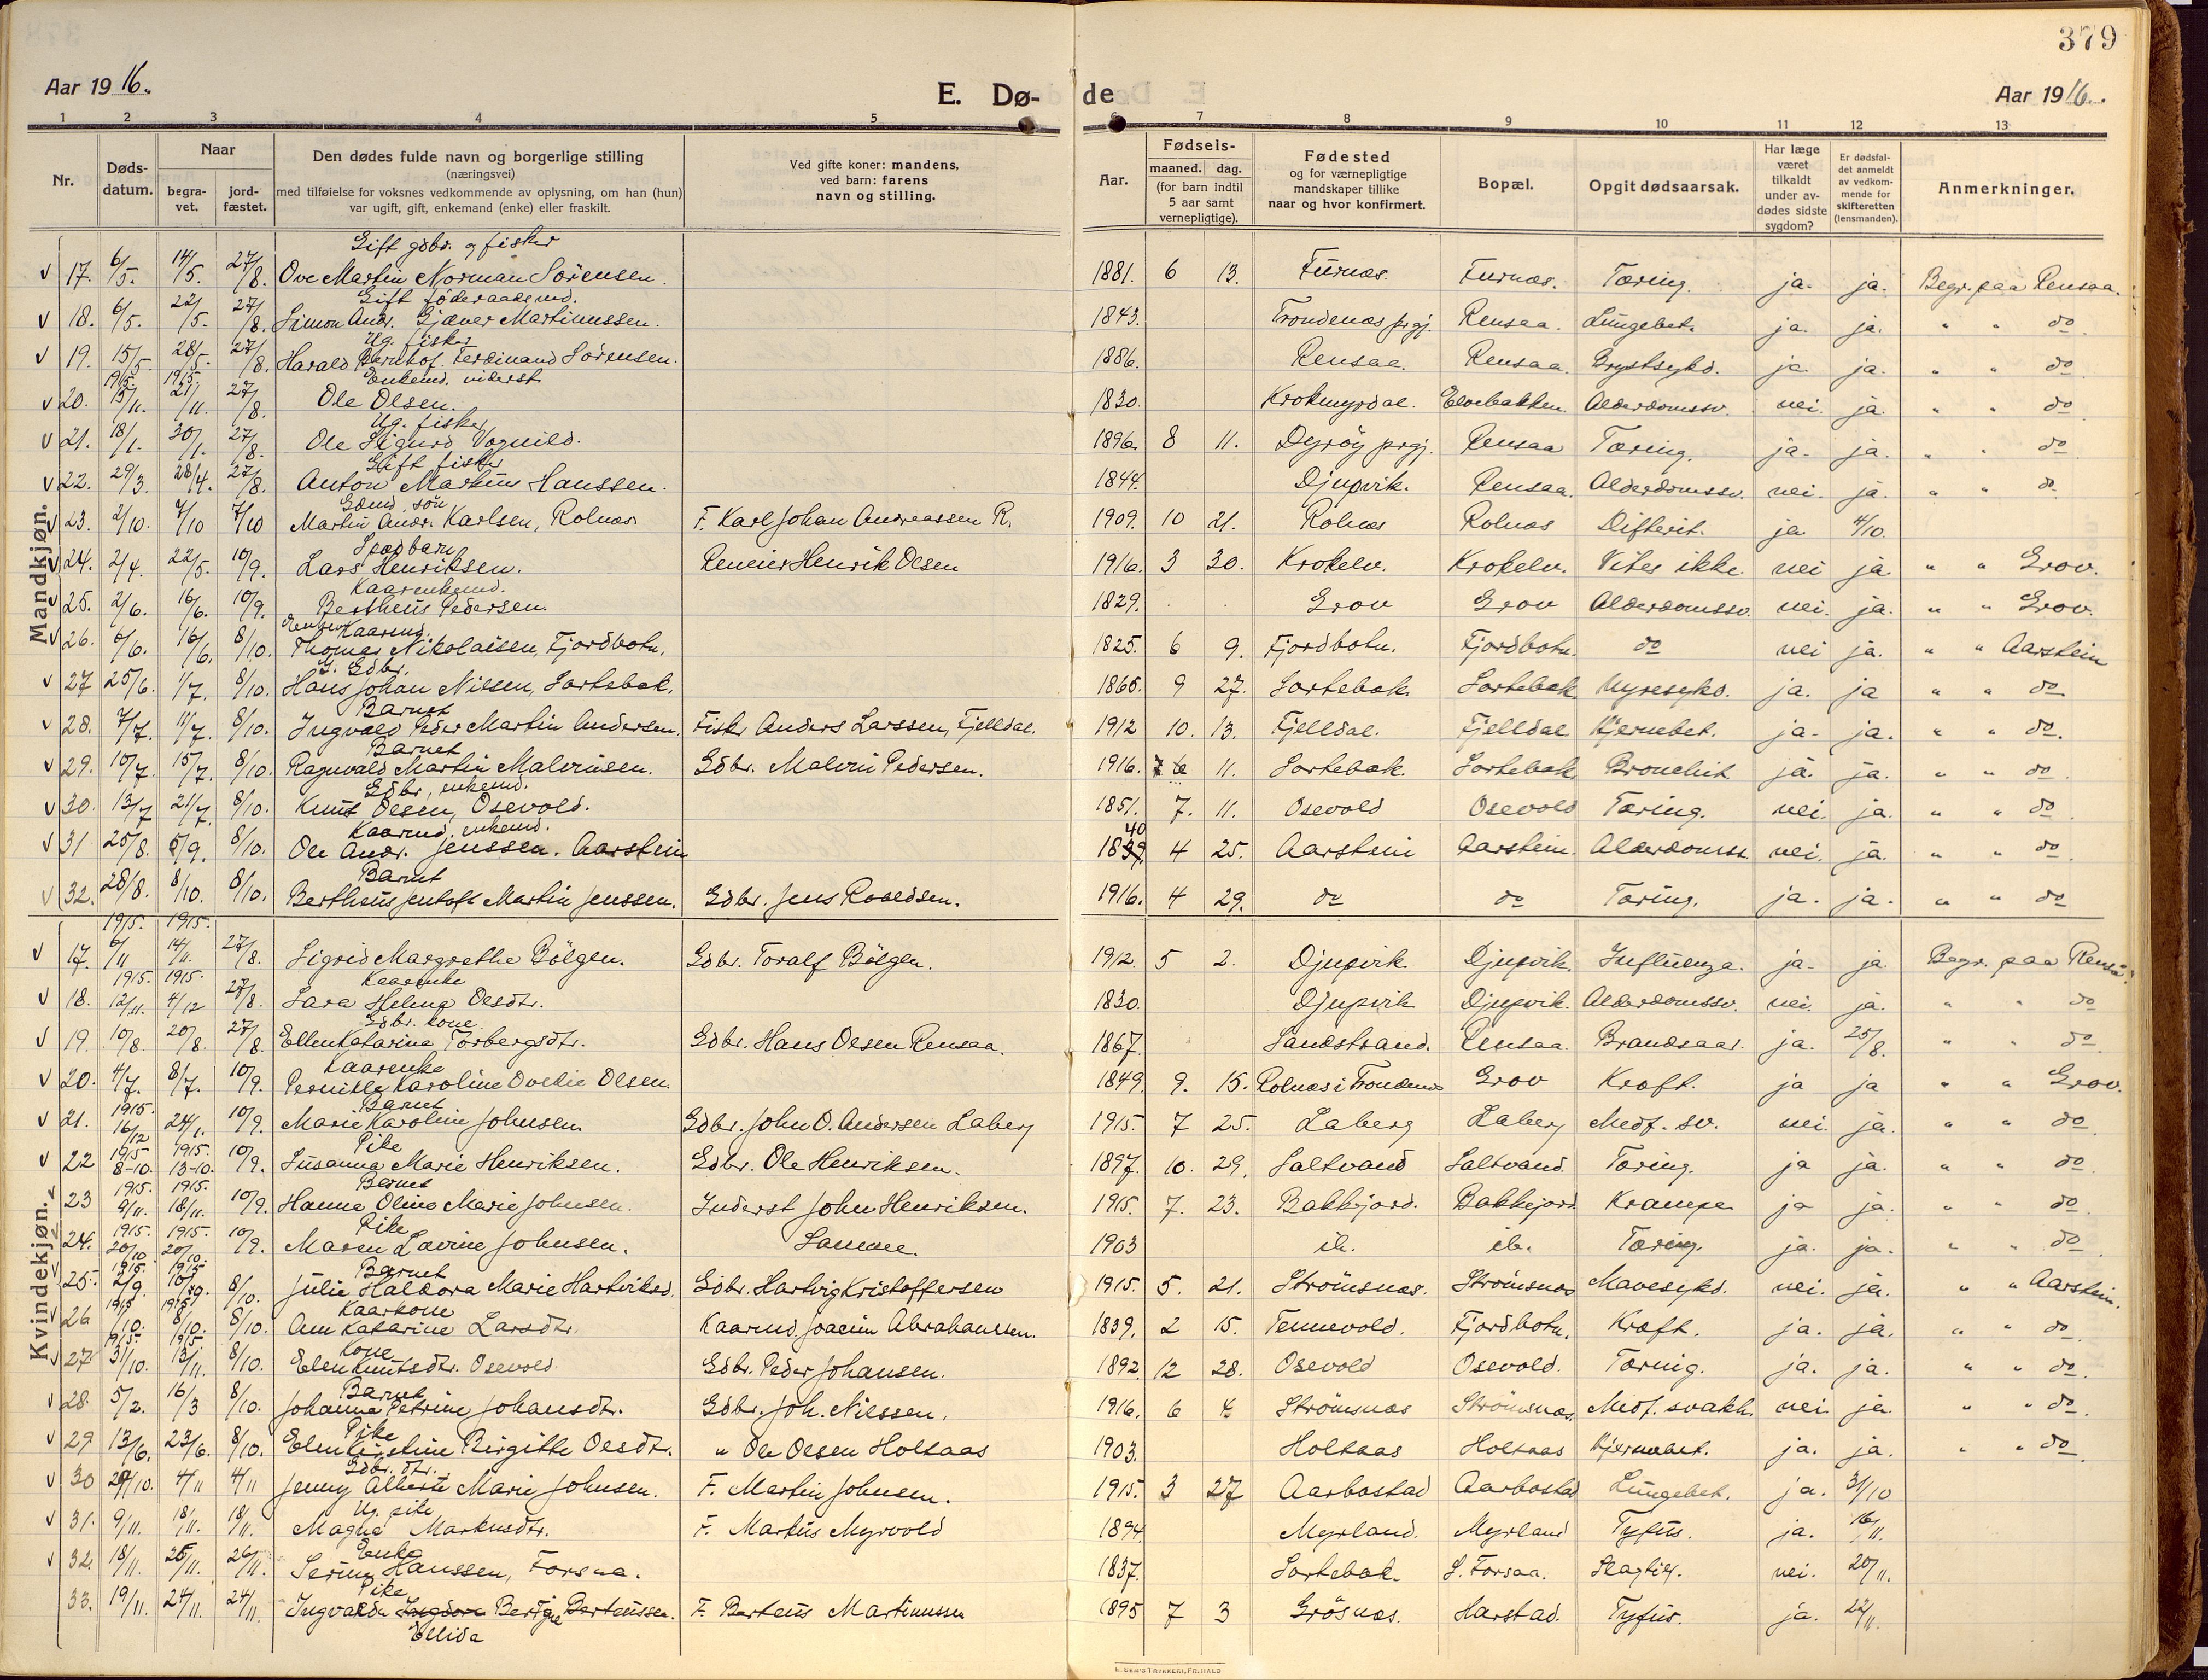 379
Aar 1916.
E. Dø-
de
Aar 1916.
1 2 3 4 5 6 7 8 9 10 11 12 13
Nr.
Døds-
datum.
Naar
begra-
vet.
jord-
fæstet.
Den dødes fulde navn og borgerlige stilling
(næringsvei)
med tilføielse for voksnes vedkommende av oplysning, om han (hun)
var ugift, gift, enkemand (enke) eller fraskilt.
Ved gifte koner: mandens,
ved barn: farens
navn og stilling.
Aar.
Fødsels-
maaned. dag.
(for barn indtil
5 aar samt
vernepligtige).
Fødested
og for værnepligtige
mandskaper tillike
naar og hvor konfirmert.
Bopæl.
Opgit dødsaarsak.
Har læge
været
tilkaldt
under av-
dødes sidste
sygdom?
Er dødsfal-
det anmeldt
av vedkom-
mende for
skifteretten
(lensmanden).
Anmerkninger.
Mandkjøn.
Gift gdbr. og fisker
17. 6/5. 14/5. 27/8. Ove Martin Norman Sørensen. 1881. 6 13. Furnæs. Furnæs. Tæring. ja. ja. Begr. paa Rensaa.
Gift föderaadsmd.
18. 6/5. 22/5. 27/8. Simon Andr. Gjæver Martinussen. 1843. Trondenæs prgj. Rensaa. Lungebet. ja. ja. " " do
Ug. fisker
19. 15/5. 28/5. 27/8. Harald Bernhof. Ferdinand Sørensen. 1886. Rensaa. Rensaa. Brystsykd. ja. ja. " " do
1915. 1915. Enkemd. inderst
20. 13/11. 21/11. 27/8. Ole Olsen. 1830. Krokmyrdal. Elvebakken. Alderdomssv. nei. ja. " " do
Ug. fisker
21. 18/1. 30/1. 27/8. Ole Sigurd Vognild. 1896. 8 11. Dyrøy prgj. Rensaa Tæring. ja. ja. " " do
Gift fisker
22. 29/3. 28/4. 27/8. Anton Markus Hanssen. 1844. Djupvik. Rensaa. Alderdomssv. nei. ja. " " do
Gdmd. søn
23. 2/10. 7/10 7/10 Martin Andr. Karlsen, Rolnæs F. Karl Johan Andreassen R. 1909. 10 21. Rolnæs Rolnæs Difterit. ja 4/10.
Spædbarn
24. 2/4. 22/5. 10/9. Lars Henriksen. Reneier Henrik Olsen 1916. 3 30. Krokelv. Krokelv. Vites ikke. nei ja " " Grov.
Kaarenkemd.
25. 2/6. 16/6. 10/9. Bertheus Pedersen. 1829. Grov Grov Alderdomssv. nei. ja. " " Grov.
Kaarmd.
26. 6/6. 16/6. 8/10. Thomas Nikolaisen, Fjordbotn. 1825. 6 9. Fjordbotn. Fjordbotn. do nei ja. " " Aarstein
G. Gdbr.
27 25/6. 1/7. 8/10. Hans Johan Nilsen, Sørtebak. 1865. 9 27. Sørtebak. Sørtebak Nyresykd. ja. ja " " do
Barnet
28. 7/7. 11/7. 8/10. Ingvald Peder Martin Andersen. Fisker Anders Larssen, Fjelldal. 1912 10. 13. Fjelldal. Fjelldal Hjernebet. ja. ja. " " do.
Barnet
29. 10/7. 15/7. 8/10. Ragnvald Martin Malvinsen. Gdbr. Malvin Pedersen. 1916. 6 11. Sortebak. Sortebak Bronchit ja. ja. " " do
Gdbr, enkemd.
30. 13/7 21/7. 8/10. Knut Olsen, Osevold. 1851. 7. 11. Osevold Osevold Tæring. nei. ja. " " do
Kaarmd. enkemd.
31 25/8. 5/9. 8/10. Ole Andr. Jenssen. Aarstein 1840 4 25. Aarstein Aarstein. Alderdomss. nei. ja. " " do
Barnet
32. 28/8. 8/10. 8/10. Bertheus Jentoft Martin Jenssen. Gdbr. Jens Roaldsen. 1916. 4 29. do do Tæring. ja. ja. " " do
Kvindekjøn.
1915. 1915.
17. 6/11 14/11. 27/8. Sigrid Margrethe Bölgen. Gdbr. Toralf Bölgen. 1912. 5 2. Djupvik. Djupvik. Influenza. ja. ja Begr. paa Rensaa
1915. 1915. Kaarenke
18. 12/11. 4/12 27/8. Sara Helena Olsdtr. 1830. Djupvik Djupvik. Alderdomssv. nei. ja. " " do
Gdbr. kone.
19. 10/8. 20/8. 27/8. Ellen Katarina Torbergsdtr. Gdbr. Hans Olsen Rensaa. 1867. Sandstrand. Rensaa. Brandsaar. ja. 25/8. " " do
Kaarenke
20. 4/7. 8/7. 10/9. Pernille Karoline Ovedie Olsen. 1849. 9. 15. Rolnæs i Trondenæs Grov Kræft. ja ja " " Grov.
1915. Barnet
21. 16/12 24/1. 10/9. Marie Karoline Johnsen. Gdbr. John O. Andersen Laberg 1915. 7 25. Laberg Laberg Medf. sv. nei. ja. " " do
1915 1915. Pike
22 8-10. 13-10. 10/9. Susanna Marie Henriksen. Gdbr. Ole Henriksen. 1897. 10. 29. Saltvand Saltvand. Tæring. ja ja. " " do
1915. 1915. Barnet
23 9/11. 18/11. 10/9. Hanna Oline Marie Johnsen. Inderst John Henriksen. 1915. 7. 23. Bakkejord. Bakkejord Krampe ja ja. " " do
1915. 1915. Pike
24. 20/10 20/10. 10/9. Maren Lavine Johnsen. Samme. 1903 ib. ib. Tæring. ja. ja. " " do
1915. 1915 Barnet
25. 2/9. 10/9. 8/10. Julie Haldora Marie Hartviksd. Gdbr. Hartvig Kristoffersen 1915. 5. 21. Strömsnæs. Strömsnæs Mavesykd. nei. ja. " " Aarstein.
1915 1915. Kaarkone
26 /10. 8/10. 8/10. Ann Katarine Larsdtr. Kaarmd. Joacim Abrahamsen. 1839. 2 15. Tennevold. Fjordbotn. Kræft. ja. ja. " " do
1915. 1915. Kone
27 31/10. 13/11. 8/10. Elen Knutsdtr. Osevold. Gdbr. Peder Johansen. 1892. 12 28. Osevold Osevold. Tæring. ja. ja. " " do
Barnet
28. 5/2. 16/3 8/10. Johanna Petrine Johansdtr. Gdbr. Joh. Nilssen. 1916. 6 Strömsnæs Strömsnæs. Medf. svakh. nei. ja. " " do
Pike
29 13/6. 23/6. 8/10. Elen Kirstine Birgitte Olsdtr. " Ole Olsen Holsaas 1903. Holsaas Holsaas Hjernebet. ja. ja. " " do
Gdbr. dtr.
30 29/10. 4/11 4/11 Jenny Alberte Marie Johnsen. F. Martin Johnsen. 1915. 3 27 Aarbostad Aarbostad Lungebet. ja. 31/10
Ug. pike
31. 9/11. 18/11. 18/11. Magna Markusdtr. F. Markus Myrvold 1894. Myrland. Myrland Tyfus. ja. 16/11.
Enke
32. 18/11. 25/11. 26/11. Serine Hanssen, Forsaa. 1837. Sortebak. S. Forsaa. Slagtilf. nei. 20/11.
Pike
33. 19/11. 24/11. 24/11. Ingvalda Bertine Berteussen. F. Berteus Martinussen 1895 7 3 Grösnæs. Harstad. Tyfus. ja. 22/11.
Ellida
E. SEM'S TRYKKERI, FR.HALD